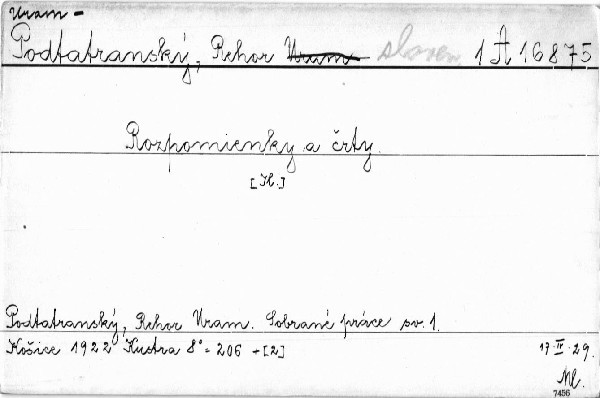 Uram-
Podtatranský, Rehor Uram sloven 1 A 16875
Rozpomienky a črty.
[Il.]
Podtatranský, Rehor Uram. Sobrané práce sv. 1.
Košice 1922 Kustra 8° = 206 + [2]
17.IV.29.
Ml.
7456